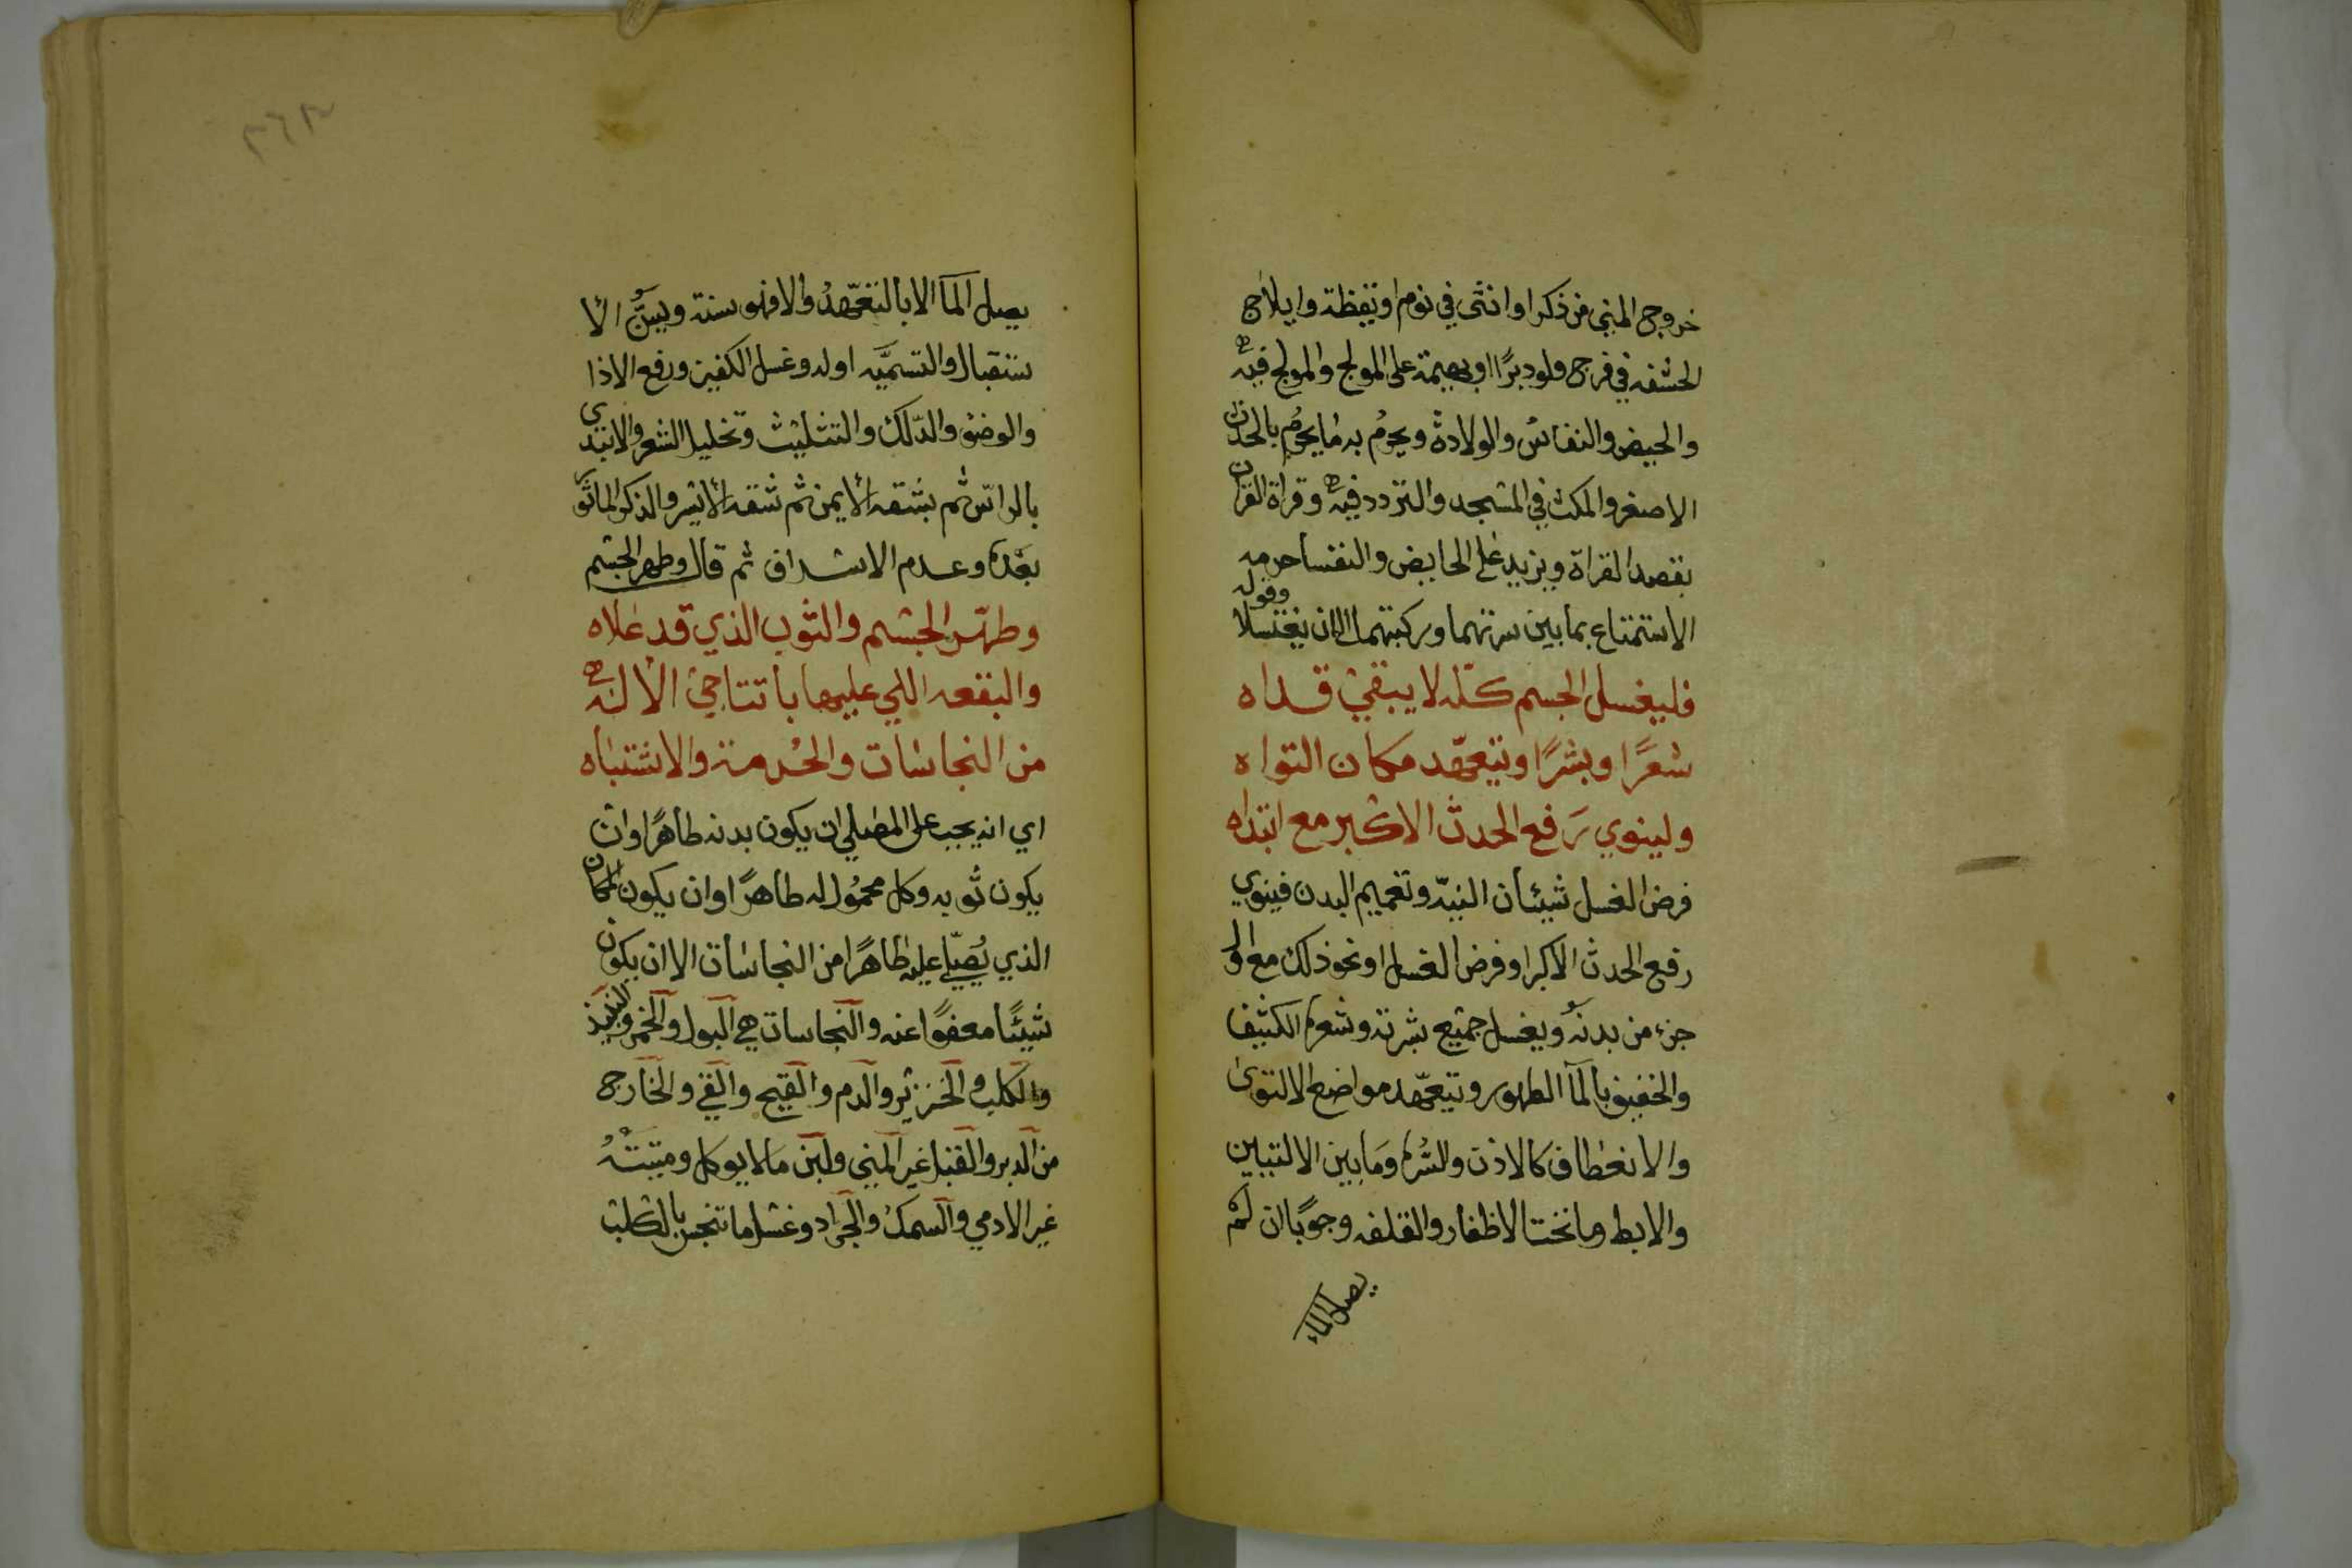 خروج المني من ذكر او انثى في نوم او يقظة وايلاج
الحشفه في فرج ولو دبرًا او بهيمة على المولج والمولج فيه
والحيض والنفاس والولادة ويحرم به ما يحرم بالحدث
الاصغر والمكث في المسجد والتردد فيه وقراة القران
بقصد القراة ويزيد على الحايض والنفسا حرمه
الاستمتاع بما بين سرتهما وركبتهما الى ان يغتسلا وقوله
فليغسل الجسم كله لا يبقي قداه
شعرًا وبشرًا ويتعهّد مكان التواه
ولينوي رَفع الحدث الاكبر مع ابتداه
فرض الغسل شيئان النيّه وتعميم البدن فينوي
رفع الحدث الاكبر او فرض الغسل او نحو ذلك مع اول
جزء من بدنه ويغسل جميع بشرته وشعره الكثيف
والخفيف بالمآ الطهور ويتعهّد مواضع الالتوى
والانعطاف كالاذن والسُره وما بين الاليتين
والابط وما تحت الاظفار والقلفه وجوبًا ان لم
يصل الماء
يصل المآ الا بالتعهّد والا فهو سنة ويسنُّ الا
ستقبال والتسميَّه اوله وغسل الكفين ورفع الاذا
والوضو والدّلك والتثليث وتخليل الشعر والابتدى
بالراس ثم بشقه الايمن ثم شقه الايسر والذكر الماثور
بعده وعدم الاسراف ثم قال وطهر الجسم
وطهّر الجسم والثوب الذي قد علاه
والبقعه اللي عليها با تتاجي الاله
من النجاسات والحرمة والاشتباه
اي انه يجب على المصلي ان يكون بدنه طاهرًا وان
يكون ثوبه وكل محمُول له طاهرًا وان يكون المكان
الذي يُصلّي عليه طاهرًا من النجاسات الا ان يكون
شيئًا معفوًا عنه والنجاسات هي البول والخمر والنبيذ
والكلب والخنزير والدم والقيح والقي والخارج
من الدبر والقبل غير المني ولبن ما لا يوكل وميتتهُ
غير الادمي والسمك والجراد وغسل ما تنجس بالكلب